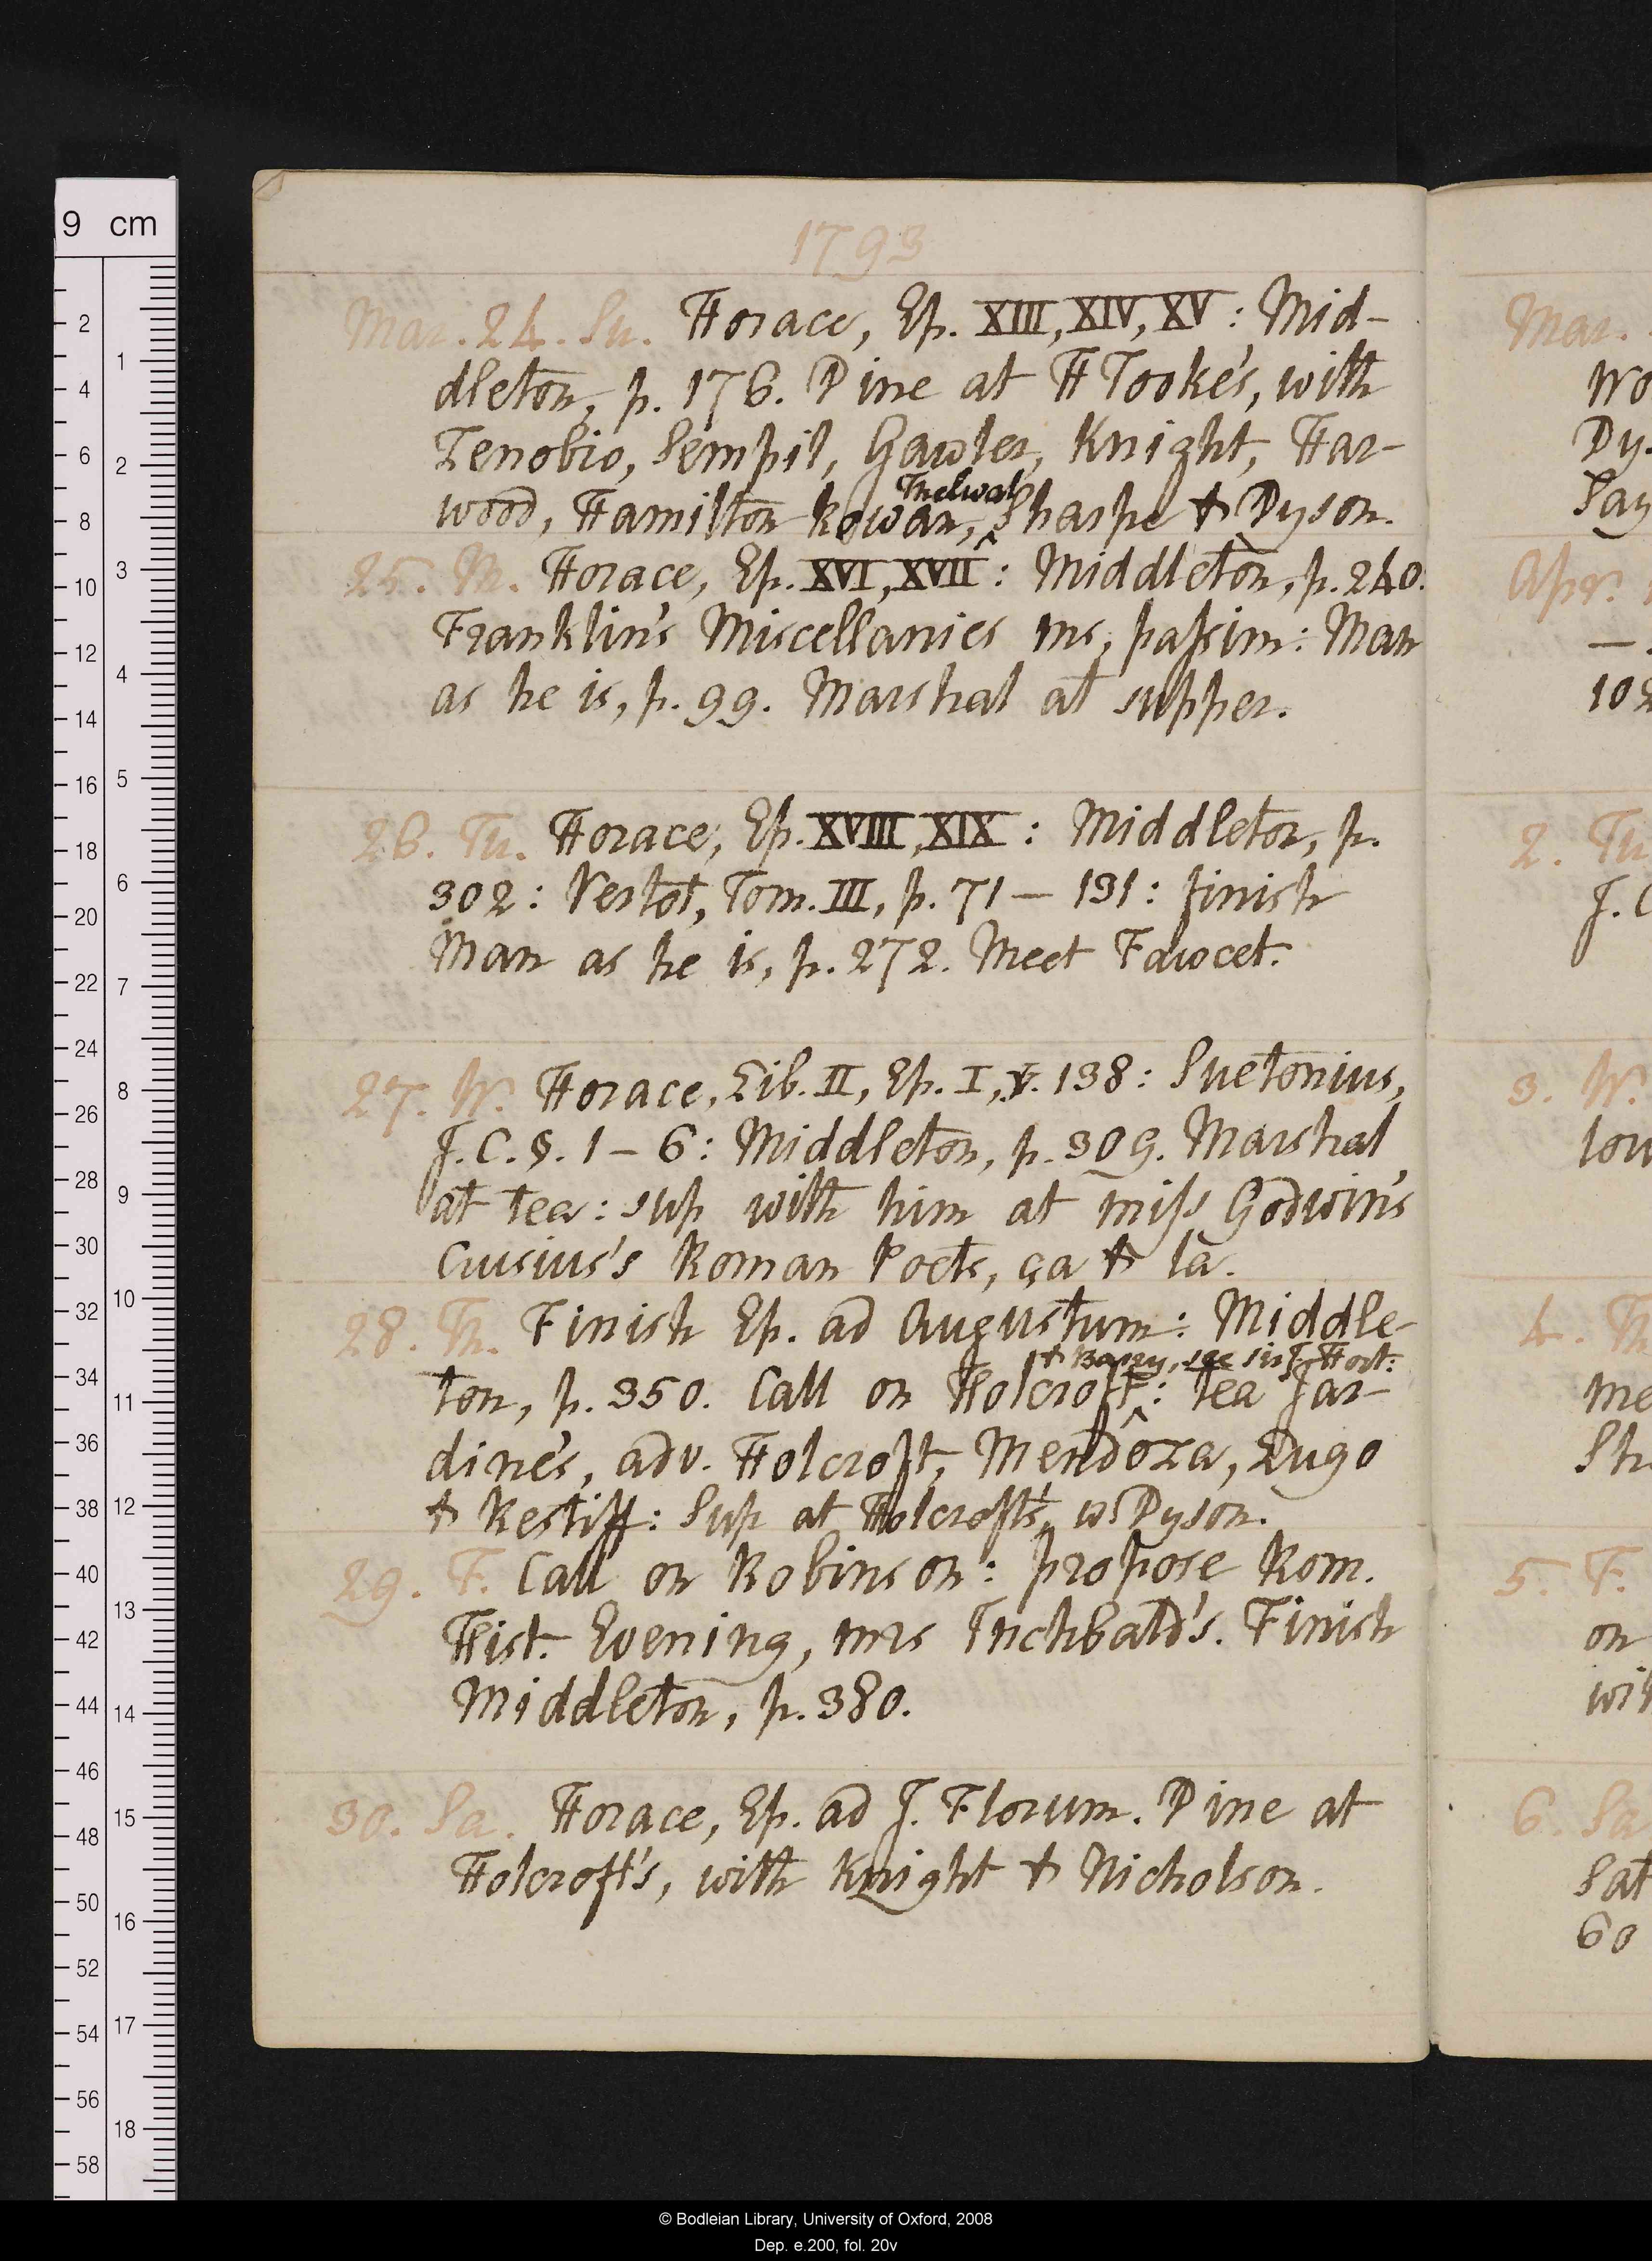 1793
Mar. 24. Su. Horace, Ep. XIII, XIV, XV: Mid-
dleton, p. 176. Dine at H Tooke's, with
Zenobio, Sempil, Gawler, Knight, Har-
wood, Hamilton Rowan, Thelwal Sharpe & Dyson.
25. M. Horace, Ep. XVI, XVII: Middleton, p. 240.
Franklin's Miscellanies ms, passim: Man
as he is, p. 99. Marshal at supper.
26. Tu. Horace, Ep. XVIII, XIX: Middleton, p.
302: Vertot, Tom. III, p. 71 — 131: finish
Man as he is, p. 272. Meet Fawcet.
27. W. Horace, Lib. II, Ep. I, v. 138: Suetonius,
J. C. §. 1 – 6: Middleton, p. 309. Marshal
at tea: sup with him at miss Godwin's
Crusius's Roman Poets, ça & la.
28. Th. Finish Ep. ad Augustum: Middle-
ton, p. 350. Call on Holcroft & Barry, see sir F. Hort: tea Jar-
dine's, adv. Holcroft, Mendoza, Lugo
& Restiff: Sup at Holcroft's, w. Dyson.
29. F. Call on Robinson: propose Rom.
Hist. Evening, mrs Inchbald's. Finish
Middleton, p. 380.
30. Sa. Horace, Ep. ad J. Florum. Dine at
Holcroft's, with Knight & Nicholson.
Mar.
Wo
Dy.
Say
Apr.
—
102
2. Tu
J. C
3. W.
low
4. Th
me
Sh
5. F.
on
wit
6. Sa
Sat
60
9 cm
© Bodleian Library, University of Oxford, 2008
Dep. e.200, fol. 20v